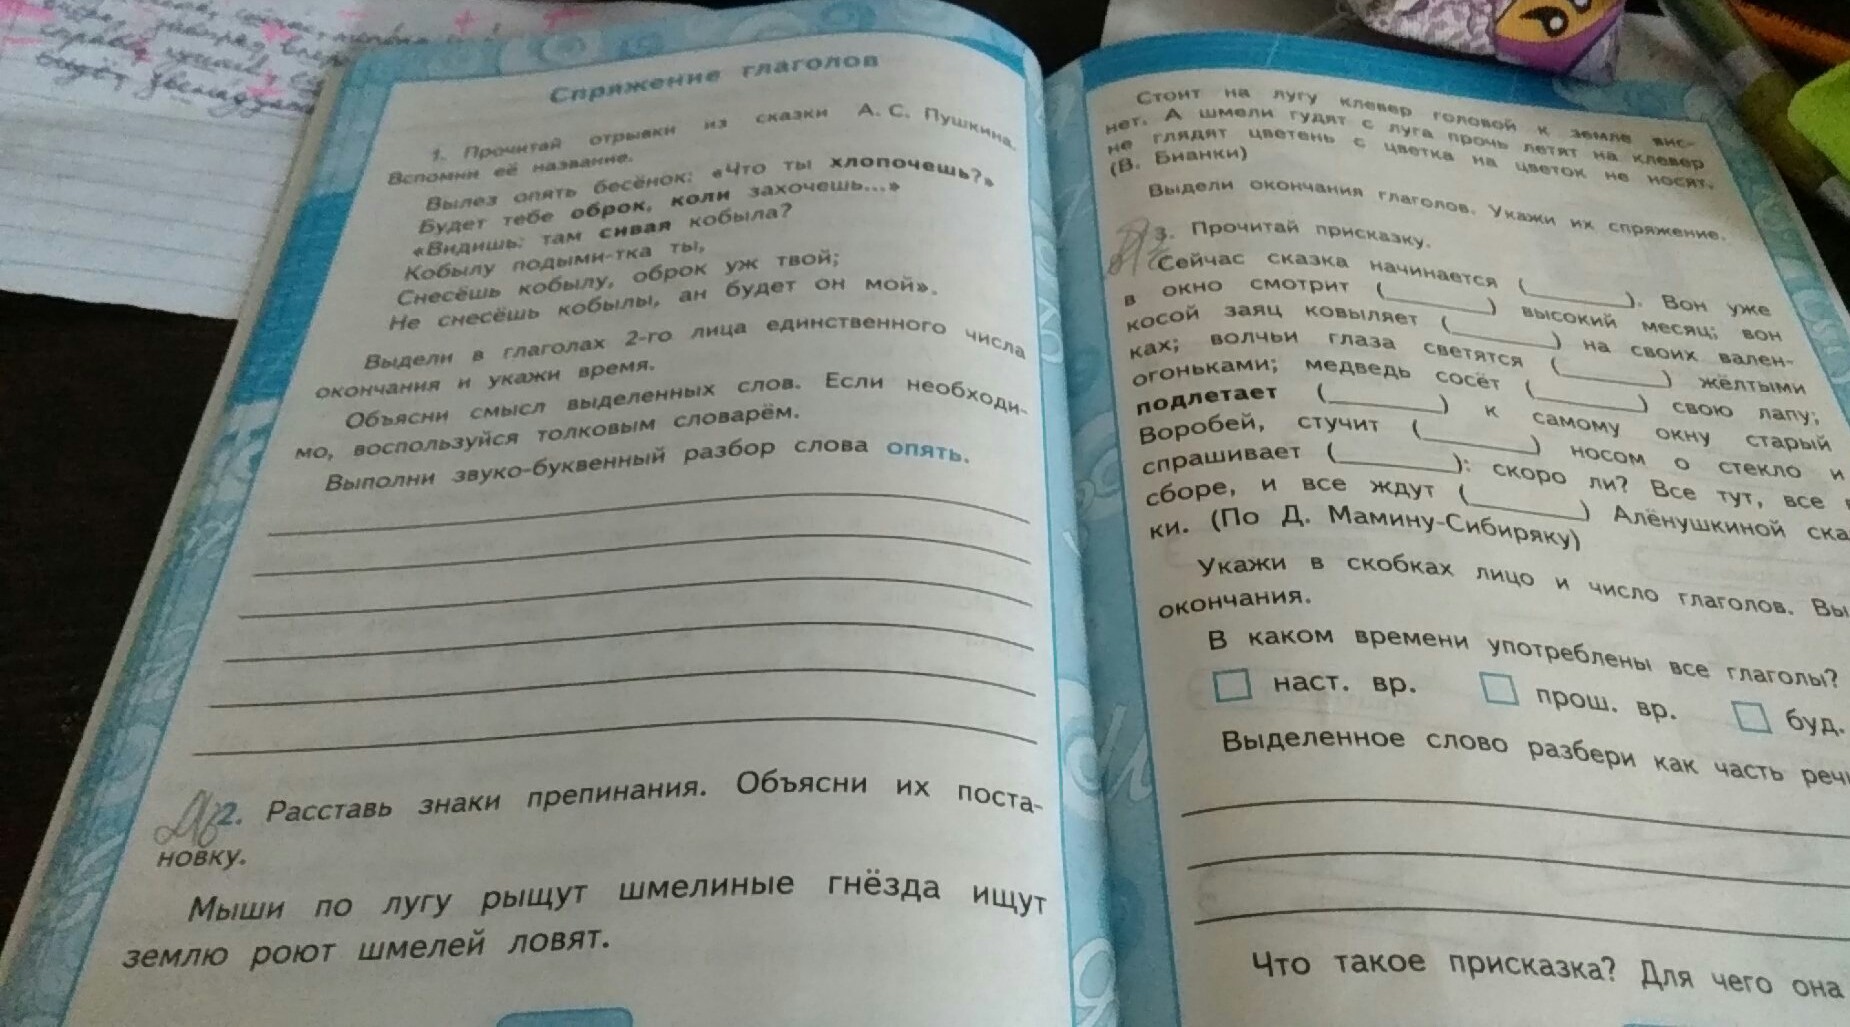 Спряжение глаголов
1. Прочитай отрывки из сказки А. С. Пушкина.
Вспомни её название.
Вылез опять бесёнок: «Что ты хлопочешь?»
Будет тебе оброк, коли захочешь...»
«Видишь: там сивая кобыла?
Кобылу подыми-тка ты,
Снесёшь кобылу, оброк уж твой;
Не снесёшь кобылы, ан будет он мой».
Выдели в глаголах 2-го лица единственного числа
окончания и укажи время.
Объясни смысл выделенных слов. Если необходи-
мо, воспользуйся толковым словарём.
Выполни звуко-буквенный разбор слова опять.
2. Расставь знаки препинания. Объясни их поста-
новку.
Мыши по лугу рыщут шмелиные гнёзда ищут
землю роют шмелей ловят.
Стоит на лугу клевер головой к земле вис-
нет. А шмели гудят с луга прочь летят на клевер
не глядят цветень с цветка на цветок не носят.
(В. Бианки)
Выдели окончания глаголов. Укажи их спряжение.
3. Прочитай присказку.
Сейчас сказка начинается (________). Вон уже
в окно смотрит (________) высокий месяц; вон
косой заяц ковыляет (________) на своих вален-
ках; волчьи глаза светятся (________) жёлтыми
огоньками; медведь сосёт (________) свою лапу;
подлетает (________) к самому окну старый
Воробей, стучит (________) носом о стекло и
спрашивает (________): скоро ли? Все тут, все
сборе, и все ждут (________) Алёнушкиной ска
ки. (По Д. Мамину-Сибиряку)
Укажи в скобках лицо и число глаголов. Вы
окончания.
В каком времени употреблены все глаголы?
наст. вр. прош. вр. буд.
Выделенное слово разбери как часть речи
Что такое присказка? Для чего она